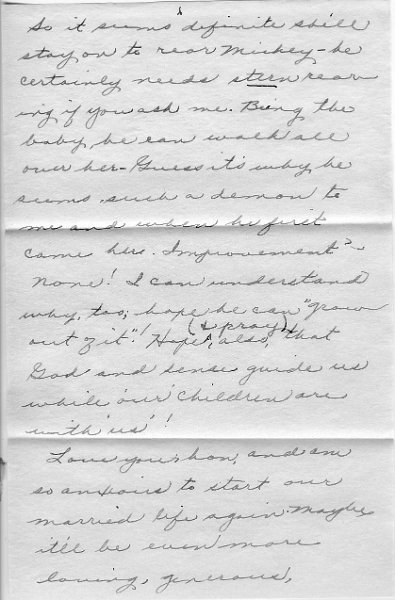 So it seems definite she'll
stay on to rear Mickey - he
certainly needs stern rear
ing if you ask me. Being the
baby, he can walk all
over her - Guess it's why he
seems such a demon to
me and when he first
came here. Improvement?
None! I can understand
why, too, hope he can "grow
out of it"! Hope (& pray), also, that
God and sense guide us
while our children are
with us!
Love you, hon, and am
so anxious to start our
married life again. Maybe
it'll be even more
loving, generous,